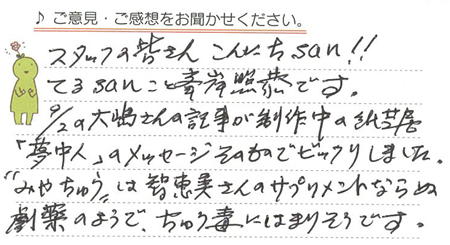 ♪ ご意見・ご感想をお聞かせください。
スタッフの皆さん こんにちsan!!
てるsanこと青岸照恭です。
9/2の大嶋さんの記事が制作中の紙芝居
「夢中人」のメッセージそのものでビックリしました。
"みやちゅう"は智恵美さんのサプリメントならぬ
劇薬のようで、ちゅう毒にはまりそうです。